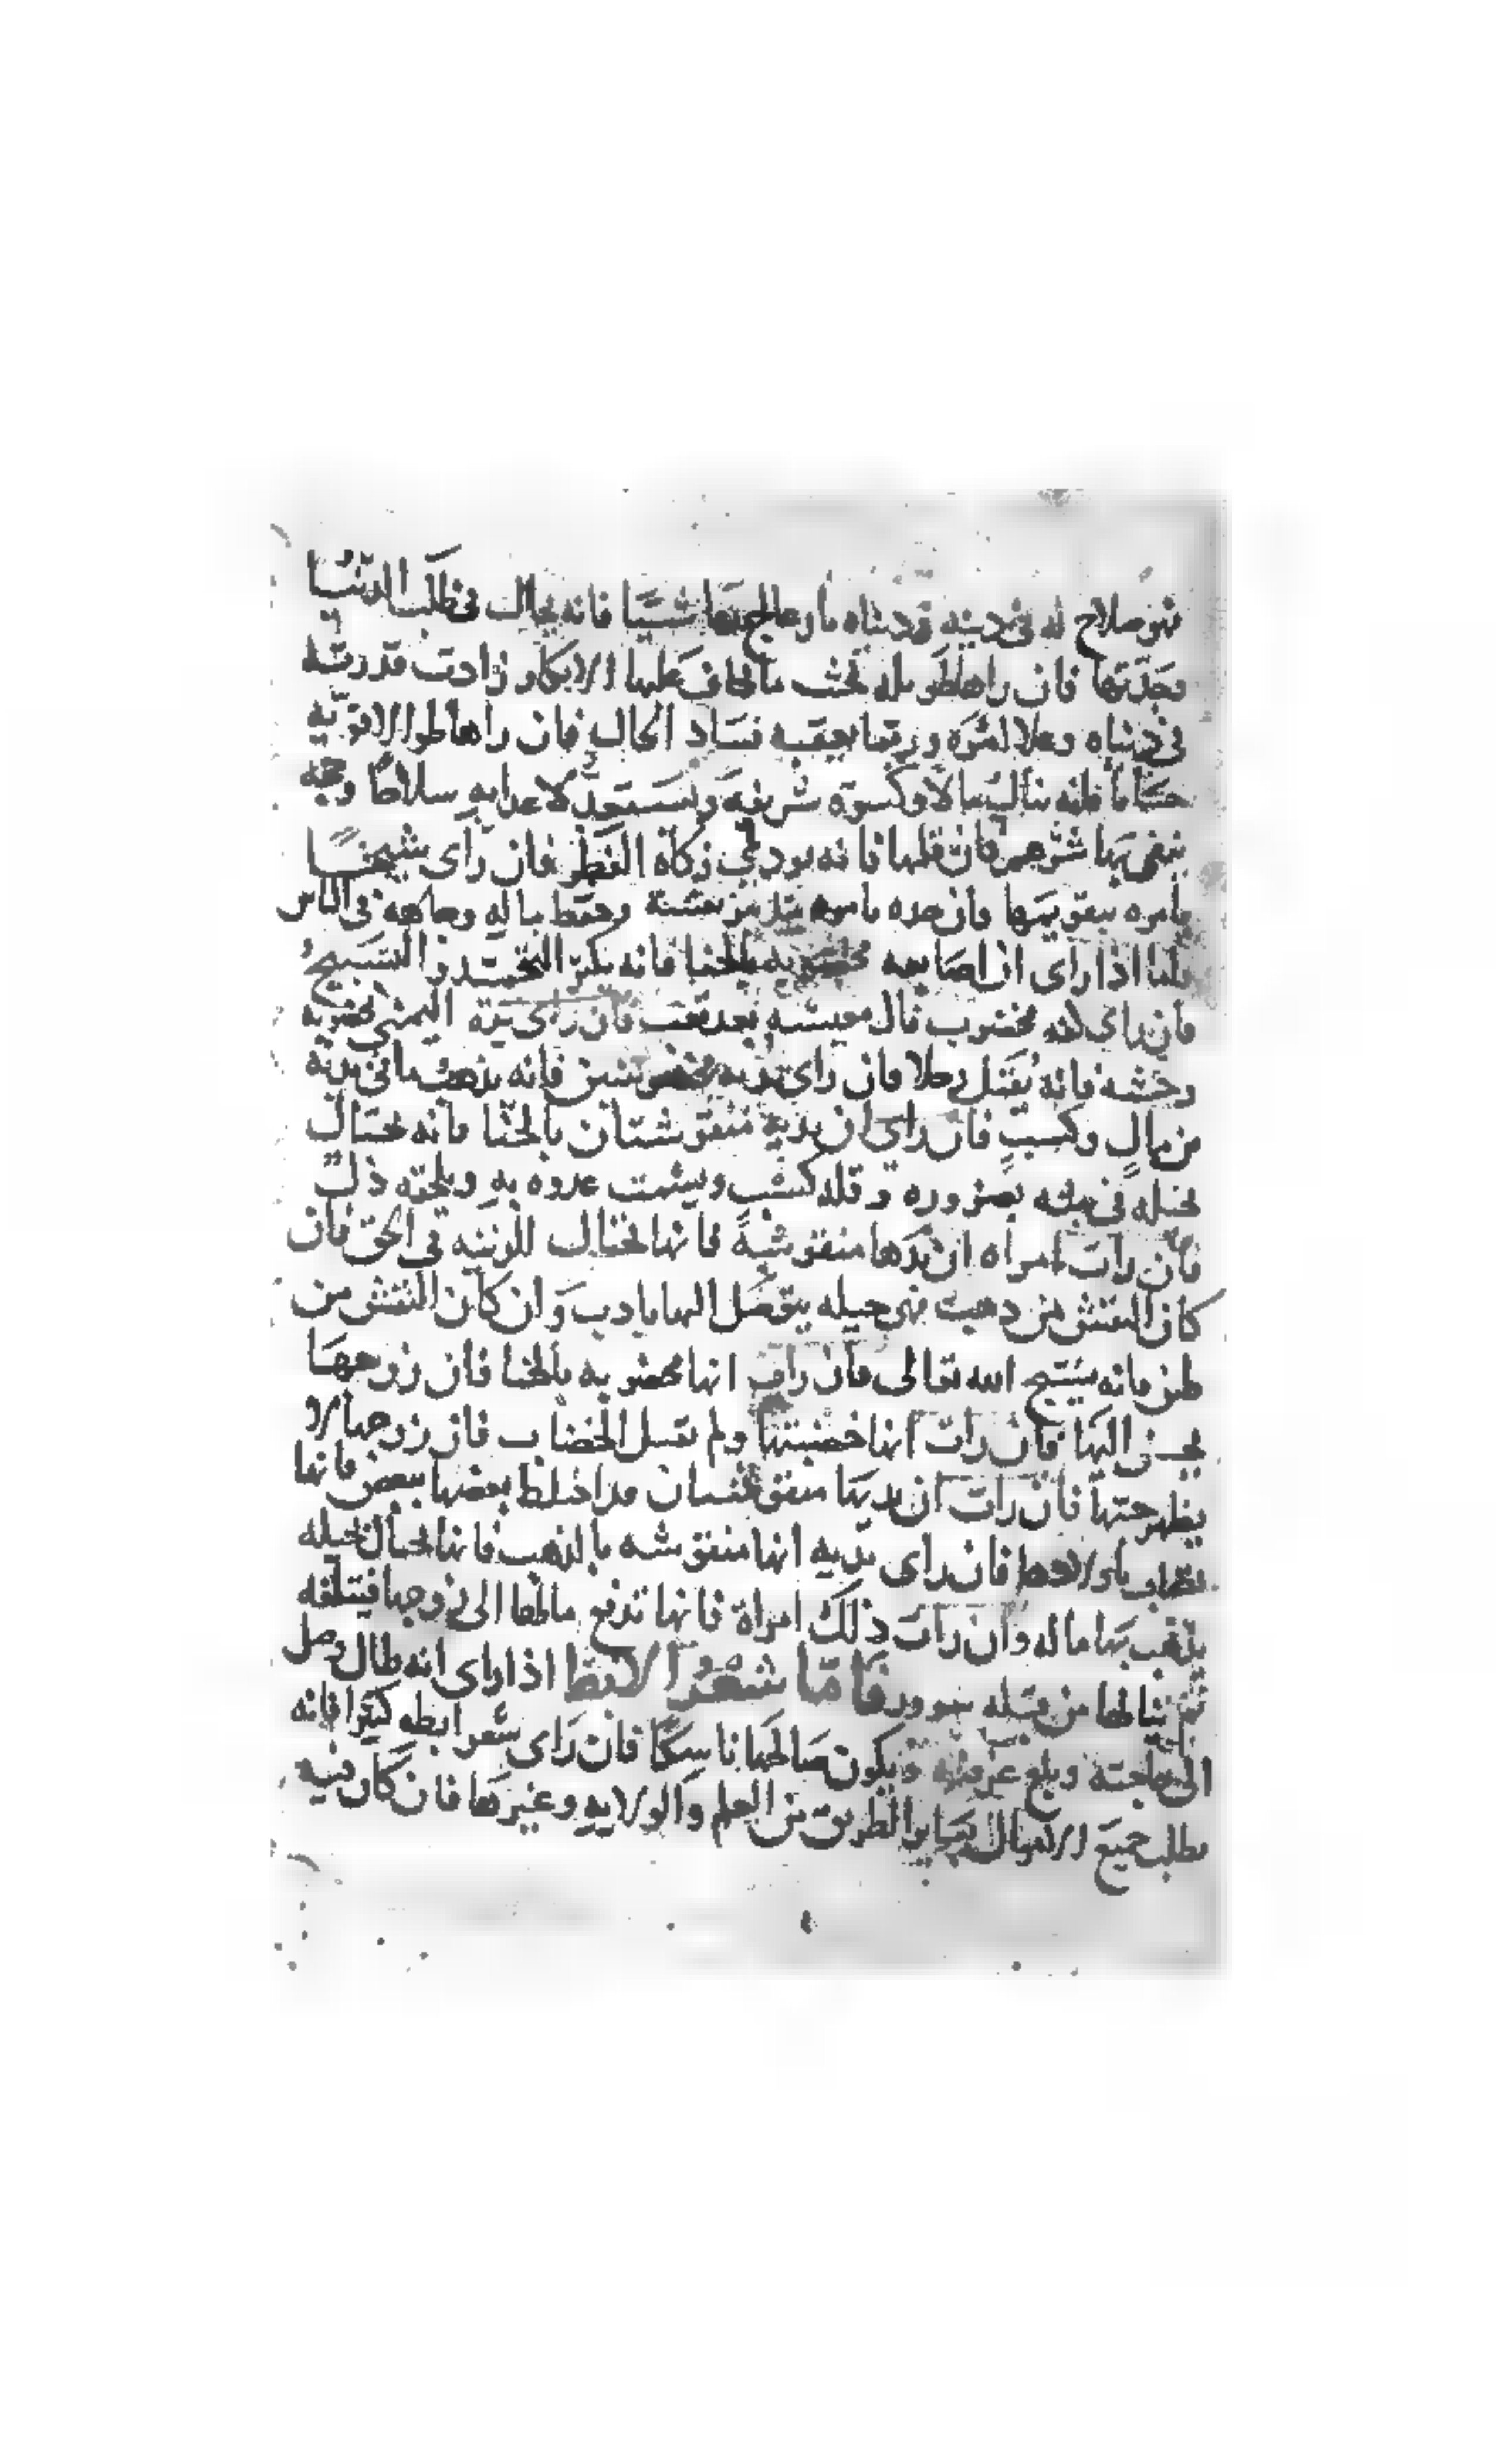 فهو صلاح له في دينه ودنياه فان عالج بها شيئا فانه يحال في طلب الدنيا
وجدتها فان راها طويله بحيث يخاف عليها الانكار زادت قدرته
في دنياه وعلا امره وربما يعقبه فساد الحال فان راها طوالا قويه
حسانا فانه ينال مالا وكسوة شريفة ويستعد لاعدايه سلاحا وحجه
ينفي بها شرهم فان قلمها فانه يودي زكاة الفطر فان راى شيخا
يامره بتقويمها فان جده يامره وحفظ ماله وجاهه في الناس
فاما اذا راى ان اصابعه مخضوبه بالحنا فانه يكثر التسبيح
فان راى كفه مخضوب نال معيشه بعد تعب فان راى يده اليمنى مخضوبه
وحشه فانه يقتل رجلا فان راى يديه مخضوبتين فانه يذهب ما في يديه
من مال وكسب فان راى ان يديه منقوشتان بالحنا فانه يحتال
بحيله في بيته بضروره وقله كسب ويشمت عدوه به ويلحقه ذل
فان رات امراه ان يدها منقوشة فانها تحتال للزينه في الحق فان
كان النقش من ذهب فهي حيله يتوصل اليها بادب وان كان النقش من
طين فانه تسبيح الله تعالى فان رات انها مخضوبه بالحنا فان زوجها
يحسن اليها فان رات انها خضبتها ولم تقبل الخضاب فان زوجها لا
يظهر حبها فان رات ان يديها منقوشتان قد اختلط بعضها ببعض فانها
تصاب باولادها فان راى يديه انها منقوشه بالذهب فانها تحتال بحيله
يذهب بها ماله وان رات ذلك امراة فانها تدفع مالها الى زوجها فيتلفه
من قبله سرور فاما شعر الابط اذا راى انه طال وصل
الى حاجته وبلغ ويكون صالحا ناسكا فان راى شعر ابطه كثيرا فانه
يطلب جميع الطريق من العلم والولايه وغيرها فان كان فيه